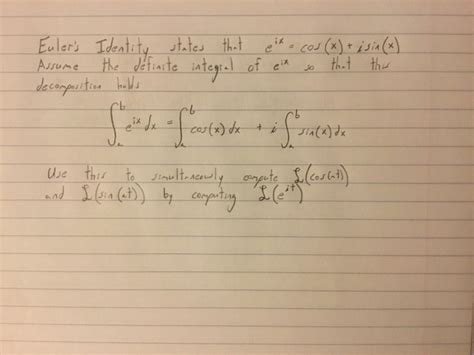 Euler's Identity states that e^{ix} = cos(x) + i sin(x)
Assume the definite integral of e^{ix} so that this
decomposition holds
∫_a^b e^{ix} dx = ∫_a^b cos(x) dx + i ∫_a^b sin(x) dx
Use this to simultaneously compute ℒ(cos(at))
and ℒ(sin(at)) by computing ℒ(e^{it})